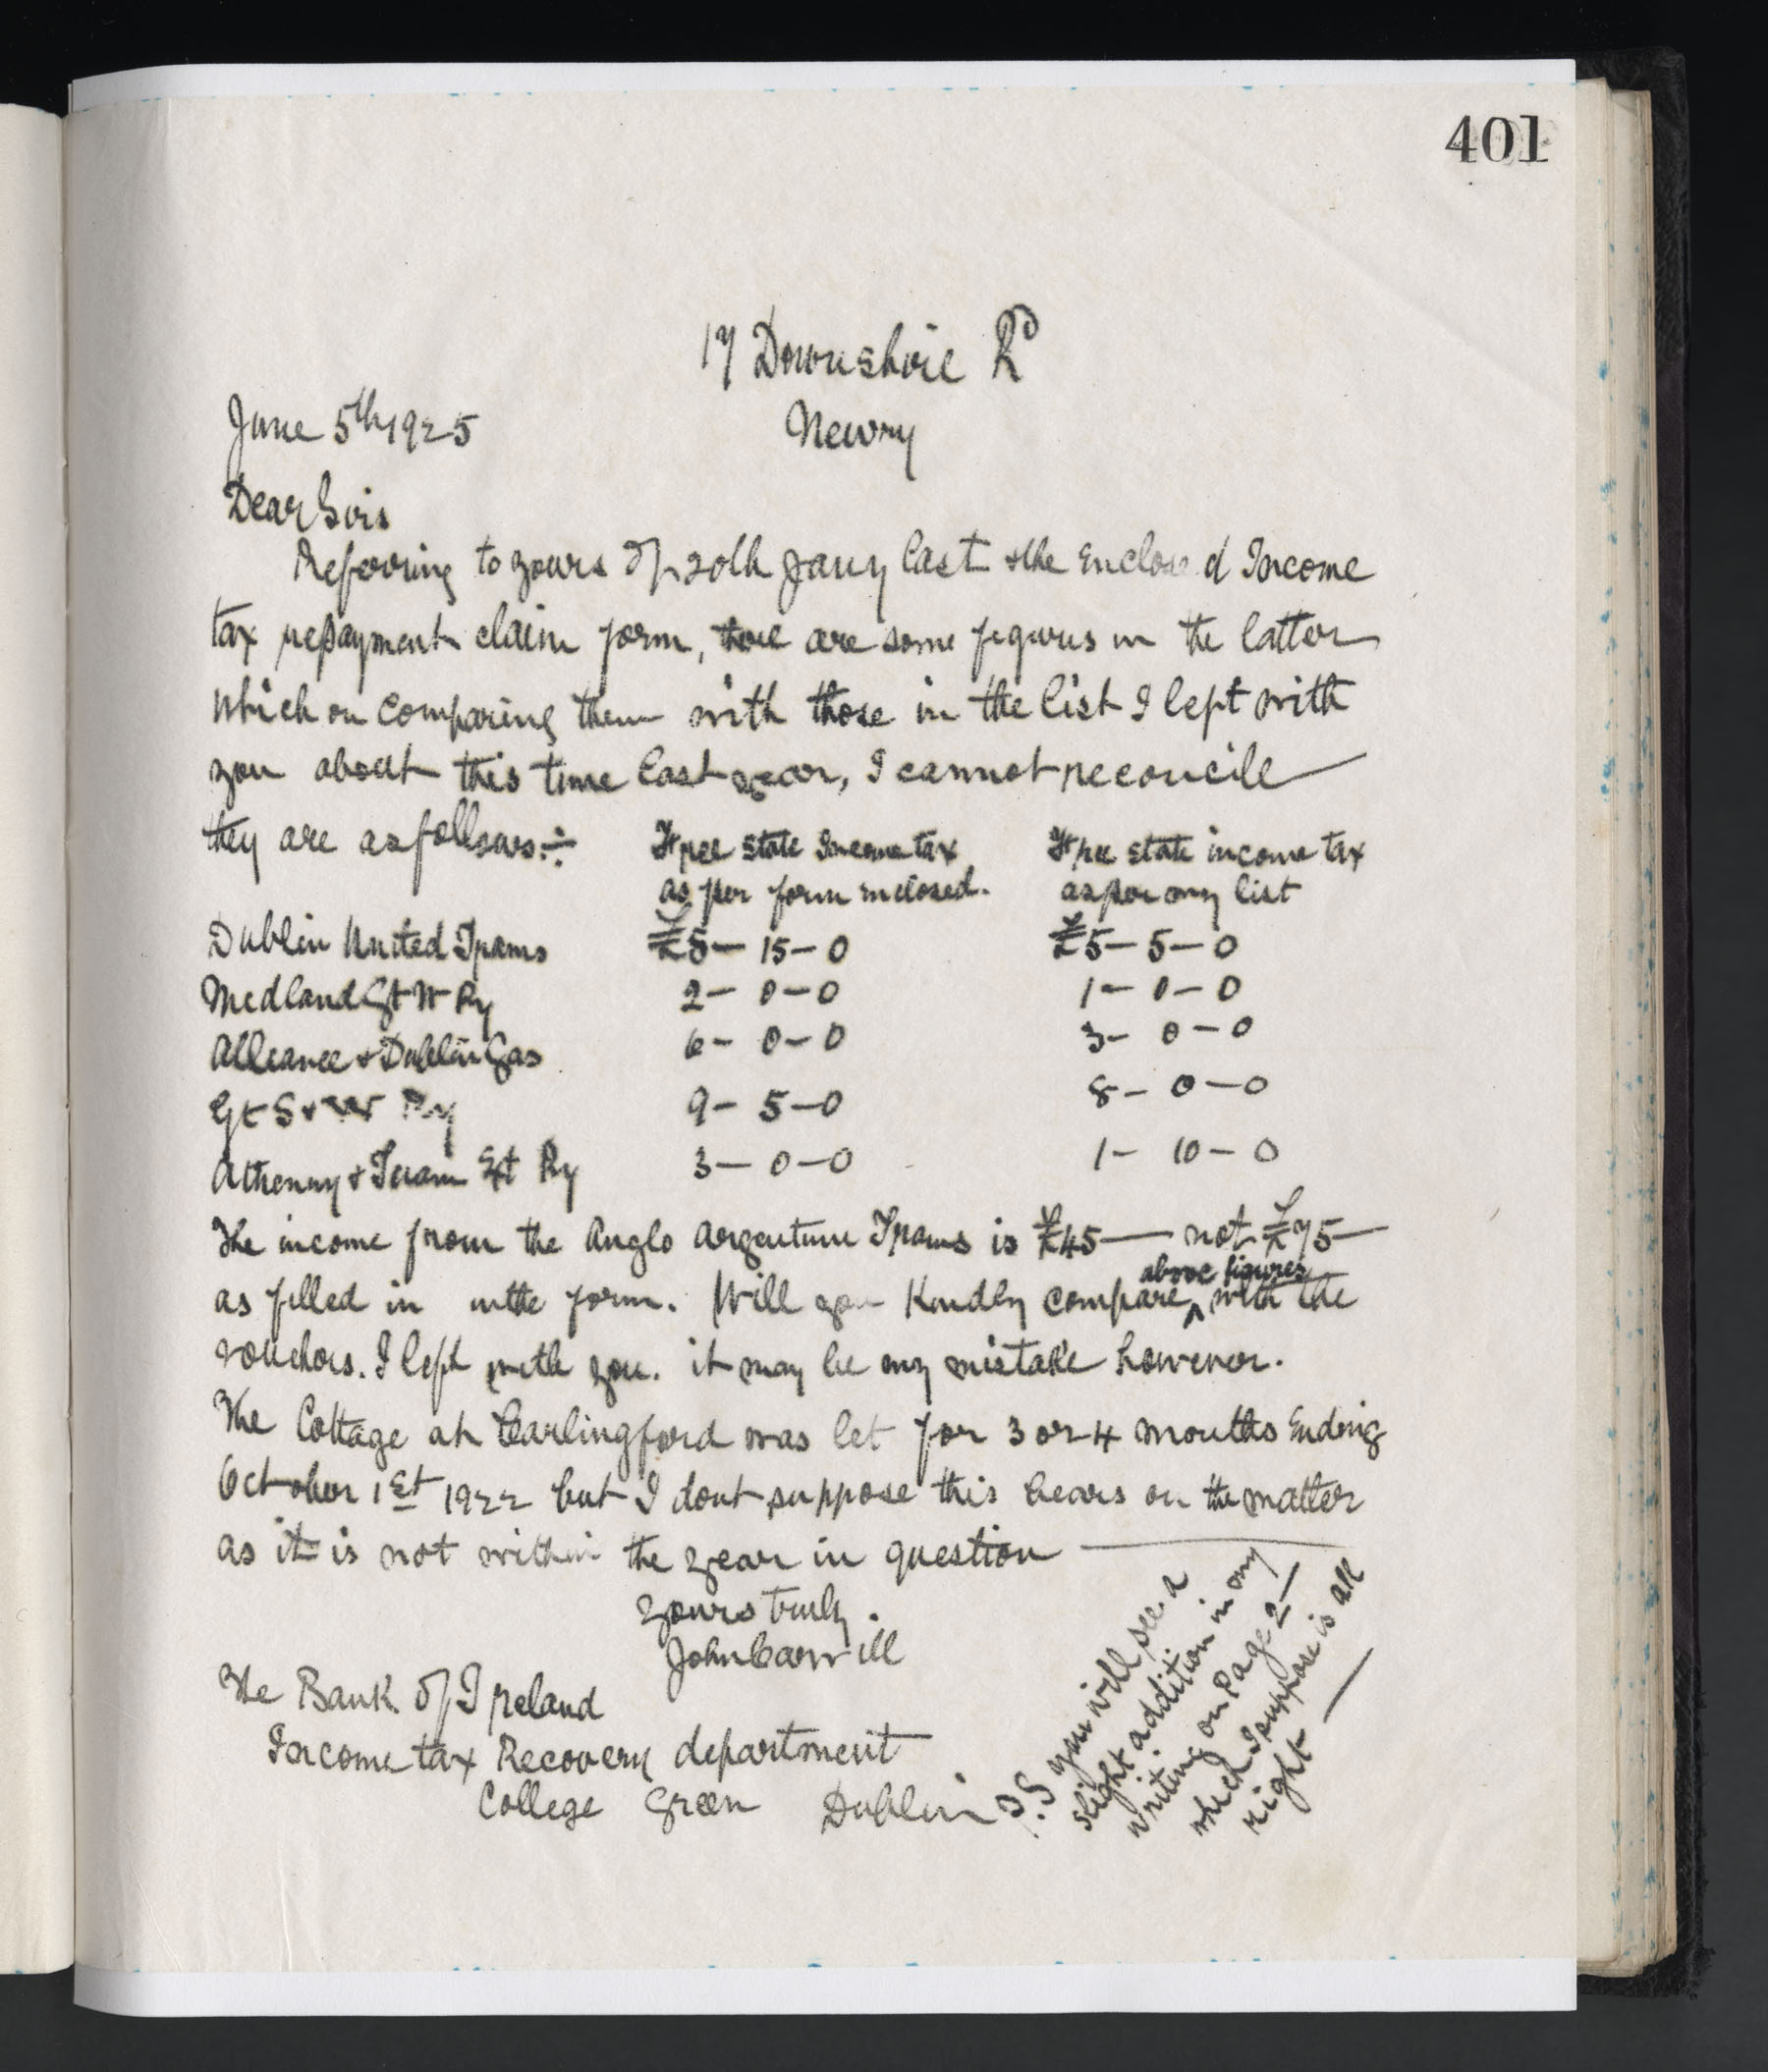 401
17 Downshire Rd
June 5th 1925
Newry
Dear Sirs
Referring to yours of 20th Jany last & the Enclosed Income
tax repayment claim form, there are some figures in the latter
which on comparing them with those in the list I left with
you about this time last year, I cannot reconcile
they are as follows:-
Free State Income tax
as per form enclosed.
Free state income tax
as per my list
Dublin United Trams £5-15-0 £5-5-0
Midland Gt W Ry 2-0-0 1-0-0
Alliance & Dublin Gas 6-0-0 3-0-0
Gt S & W Ry 9-5-0 8-0-0
Athenry & Tuam Ext Ry 3-0-0 1-10-0
The income from the Anglo Argentine Trams is £45— not £75—
as filled in in the form. Will you Kindly compare above figures with the
vouchers. I left with you. it may be my mistake however.
The Cottage at Carlingford was let for 3 or 4 months Ending
October 1st 1922 but I dont suppose this bears on the matter
as it is not within the year in question —
yours truly.
John Carvill
The Bank of Ireland
Income tax Recovery department
College Green Dublin
P.S you will see a
slight addition in my
writing on Page 2—
which I suppose is all
right —